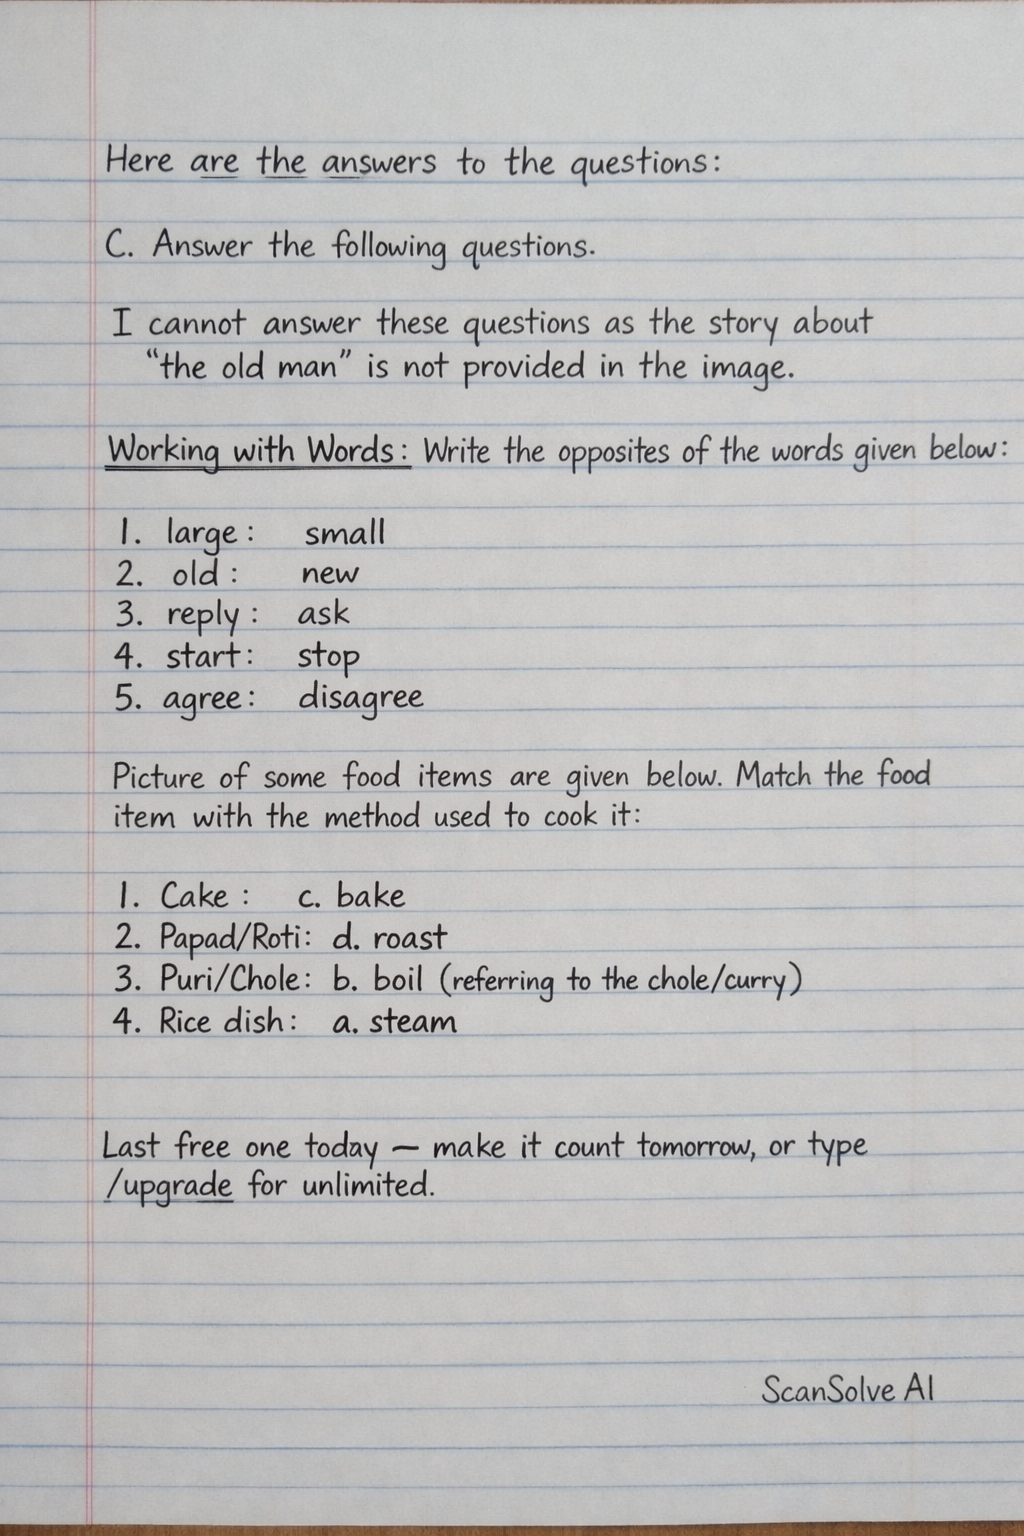 Here are the answers to the questions:
C. Answer the following questions.
I cannot answer these questions as the story about
“the old man” is not provided in the image.
Working with Words: Write the opposites of the words given below:
1. large: small
2. old: new
3. reply: ask
4. start: stop
5. agree: disagree
Picture of some food items are given below. Match the food
item with the method used to cook it:
1. Cake: c. bake
2. Papad/Roti: d. roast
3. Puri/Chole: b. boil (referring to the chole/curry)
4. Rice dish: a. steam
Last free one today — make it count tomorrow, or type
/upgrade for unlimited.
ScanSolve AI